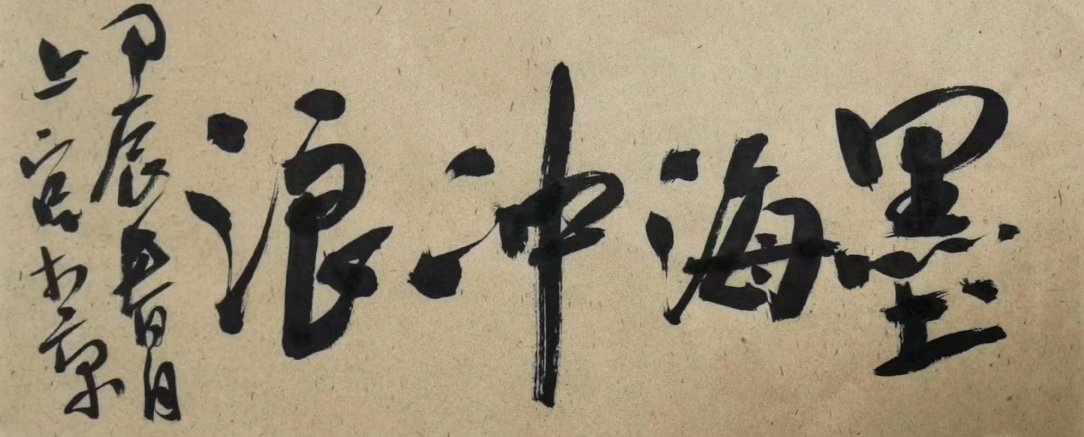 墨海冲浪
甲辰春月
上官